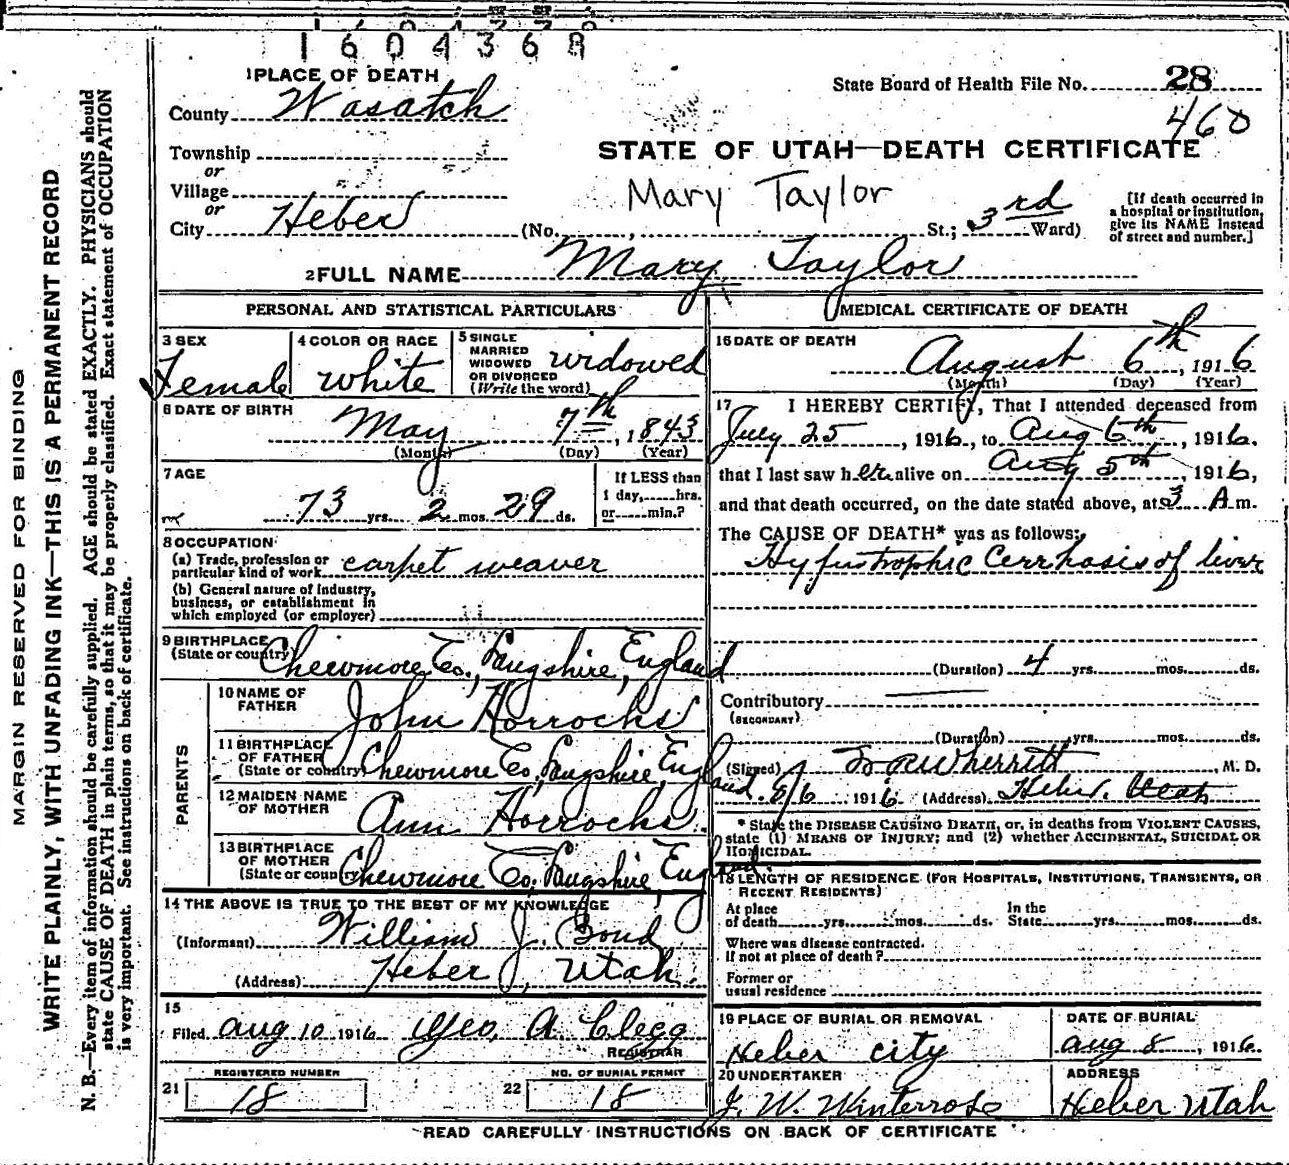 1604368
1 PLACE OF DEATH
State Board of Health File No. 28
County Wasatch
460
Township
STATE OF UTAH—DEATH CERTIFICATE
or
Village
Mary Taylor
or
City Heber (No. , St.; 3rd Ward)
[If death occurred in
a hospital or institution,
give its NAME instead
of street and number.]
2 FULL NAME Mary Taylor
PERSONAL AND STATISTICAL PARTICULARS
3 SEX
Female
4 COLOR OR RACE
white
5 SINGLE
MARRIED
WIDOWED
OR DIVORCED
(Write the word)
widowed
6 DATE OF BIRTH
May 7th, 1843
(Month) (Day) (Year)
7 AGE
73 yrs. 2 mos. 29 ds.
If LESS than
1 day, hrs.
or min.?
8 OCCUPATION
(a) Trade, profession or
particular kind of work carpet weaver
(b) General nature of industry,
business, or establishment in
which employed (or employer)
9 BIRTHPLACE
(State or country) Chewmore Co., Langshire, England
PARENTS
10 NAME OF
FATHER
John Horrocks
11 BIRTHPLACE
OF FATHER
(State or country) Chewmore Co, Langshire, England.
12 MAIDEN NAME
OF MOTHER
Ann Horrocks.
13 BIRTHPLACE
OF MOTHER
(State or country) Chewmore Co. Langshire, England.
14 THE ABOVE IS TRUE TO THE BEST OF MY KNOWLEDGE
(Informant) William J. Bond
(Address) Heber, Utah.
15
Filed Aug 10 1916 Geo. A. Clegg
REGISTRAR
REGISTERED NUMBER
21 18
NO. OF BURIAL PERMIT
22 18
MEDICAL CERTIFICATE OF DEATH
16 DATE OF DEATH
August 6th, 1916
(Month) (Day) (Year)
17 I HEREBY CERTIFY, That I attended deceased from
July 25, 1916, to Aug 6th, 1916.
that I last saw her alive on Aug 5th, 1916,
and that death occurred, on the date stated above, at 3 A m.
The CAUSE OF DEATH* was as follows:
Hypertrophic Cerrhosis of liver
(Duration) 4 yrs. mos. ds.
Contributory
(SECONDARY)
(Duration) yrs. mos. ds.
(Signed) Wherritt, M. D.
8/6 1916 (Address) Heber. Utah
* State the DISEASE CAUSING DEATH, or, in deaths from VIOLENT CAUSES,
state (1) MEANS OF INJURY; and (2) whether ACCIDENTAL, SUICIDAL OR
HOMICIDAL.
18 LENGTH OF RESIDENCE (FOR HOSPITALS, INSTITUTIONS, TRANSIENTS, OR
RECENT RESIDENTS)
At place
of death yrs. mos. ds.
In the
State yrs. mos. ds.
Where was disease contracted.
if not at place of death?
Former or
usual residence
19 PLACE OF BURIAL OR REMOVAL
Heber city
DATE OF BURIAL
Aug 8, 1916
20 UNDERTAKER
J. W. Winterrose
ADDRESS
Heber Utah
READ CAREFULLY INSTRUCTIONS ON BACK OF CERTIFICATE
MARGIN RESERVED FOR BINDING
WRITE PLAINLY, WITH UNFADING INK—THIS IS A PERMANENT RECORD
N. B.—Every item of information should be carefully supplied. AGE should be stated EXACTLY. PHYSICIANS should
state CAUSE OF DEATH in plain terms, so that it may be properly classified. Exact statement of OCCUPATION
is very important. See instructions on back of certificate.